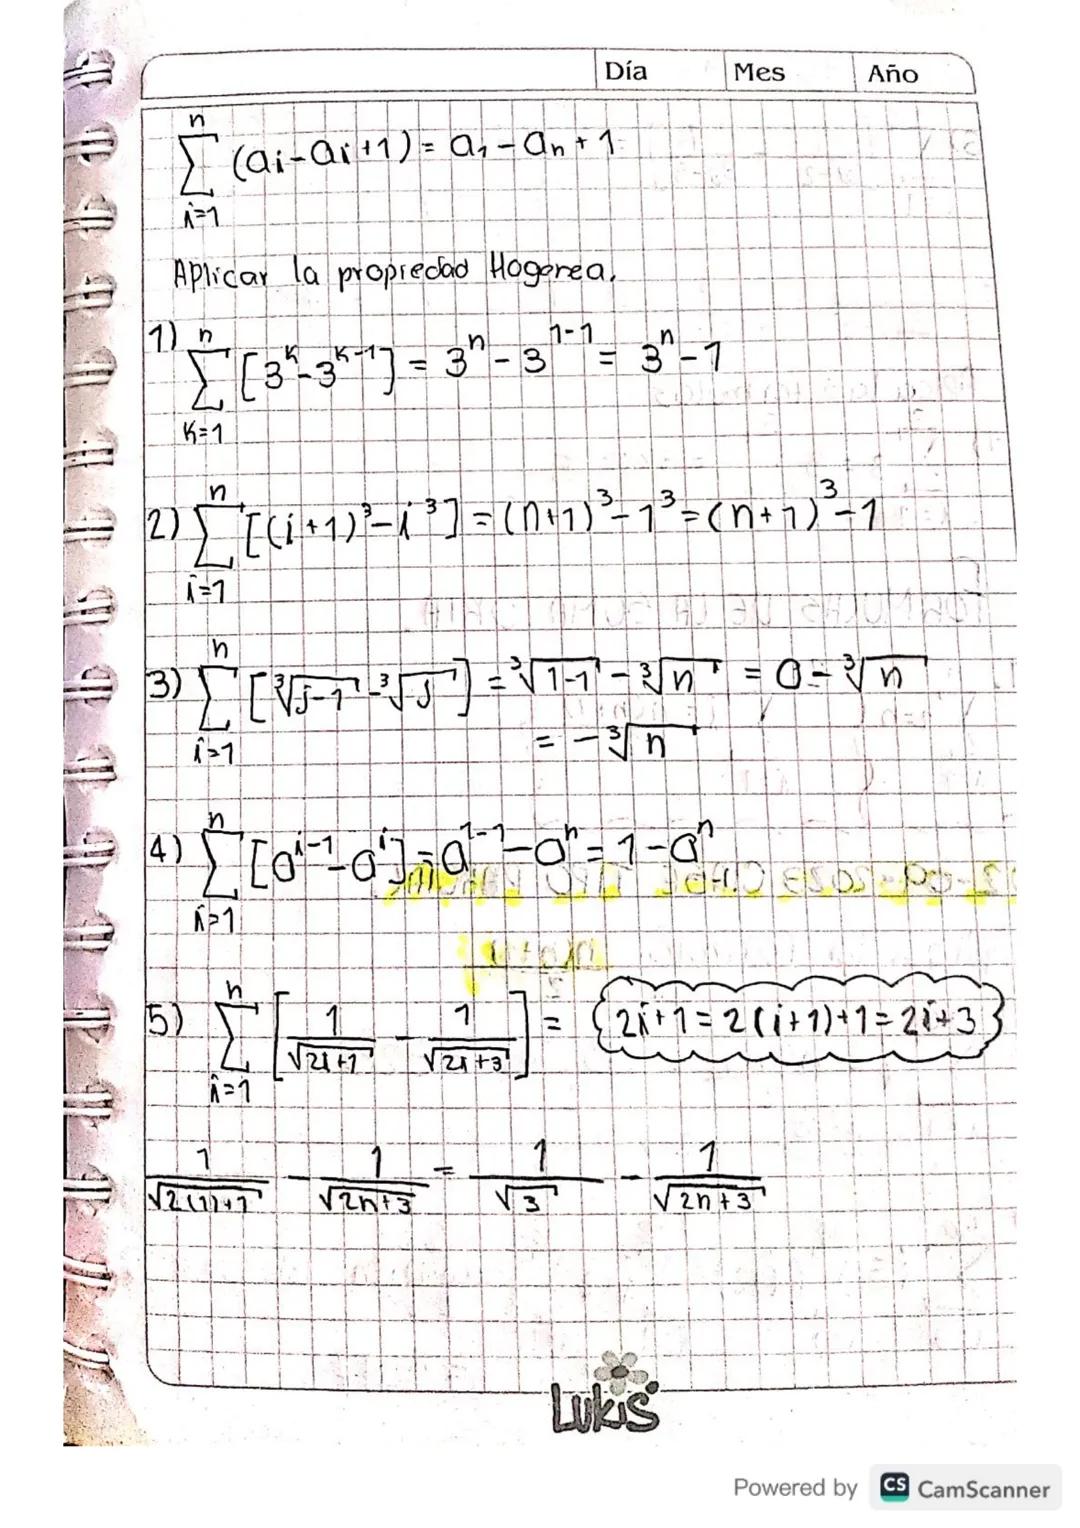 Día Mes Año
n
∑ (ai - ai+1) = a₁ - an + 1
i=1
Aplicar la propiedad Hogorea.
1) n
∑ [3^k - 3^k-1] = 3^n - 3^1-1 = 3^n - 1
K=1
n
2) ∑ [(i+1)³ - i³] = (n+1)³ - 1³ = (n+1)³ - 1
i=1
n
3) ∑ [∛j-1 - ∛j] = ∛1-1 - ∛n = 0 - ∛n
i=1 = - ∛n
n
4) ∑ [a^i-1 - a^i] = a^1-1 - a^n = 1 - a^n
i=1
n
5) ∑ [1/√2i+1 - 1/√2i+3] = 2i+1 = 2(i+1)+1 = 2i+3
i=1
1/√2(1)+1 - 1/√2n+3 = 1/√3 - 1/√2n+3
Lukis
Powered by CS CamScanner